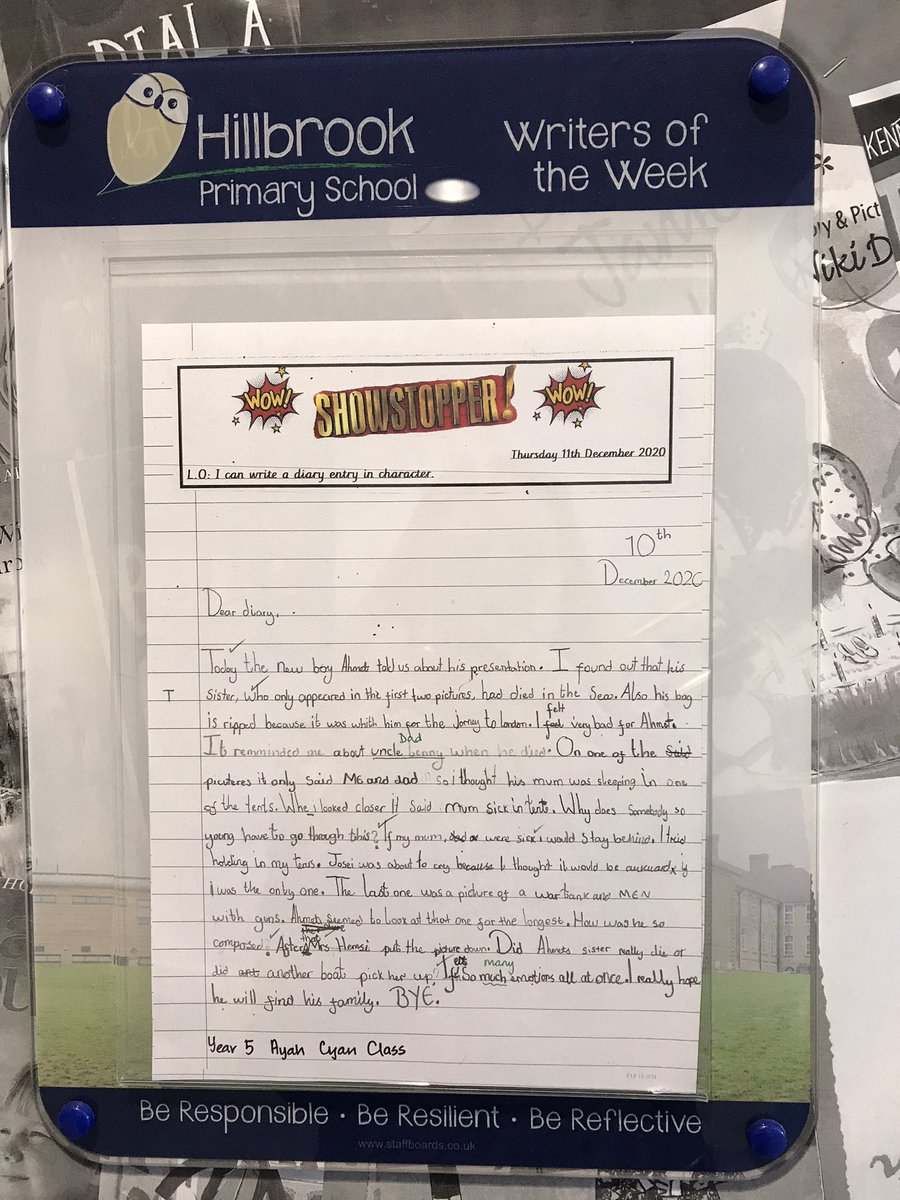 DIAL A
Hillbrook
Primary School
Writers of
the Week
KENN
ry & Pict
Niki D
WOW!
SHOWSTOPPER!
WOW!
Thursday 11th December 2020
L.O: I can write a diary entry in character.
10th
December 2020
Dear diary,
Today the new boy Ahmet told us about his presentation. I found out that his
T
sister, who only appeared in the first two pictures, had died in the Sea. Also his bag
is ripped because it was whith him for the jorney to london. I felt very bad for Ahmet.
Dad
It remminded me about uncle Lenny when he died. On one of the Said
picuteres it only said Me and dad so i thought his mum was sleeping in one
of the tents. Whe i looked closer it said mum sick in tent. Why does somebody so
young have to go through this? If my mum, dad or were sick i would stay behind. I
holding in my tears. Josei was about to cry because I thought it would be awkward if
i was the only one. The last one was a picture of a war tank and MEN
with guns. Ahmet seemed to look at that one for the longest. How was he so
composed? After that Mrs Hemsi put the picture down. Did Ahmets sister really die or
many
did another boat pick her up? I felt so much emotions all at once. I really hope
he will find his family. BYE.
Year 5 Ayah Cyan Class
Be Responsible · Be Resilient · Be Reflective
www.staffboards.co.uk